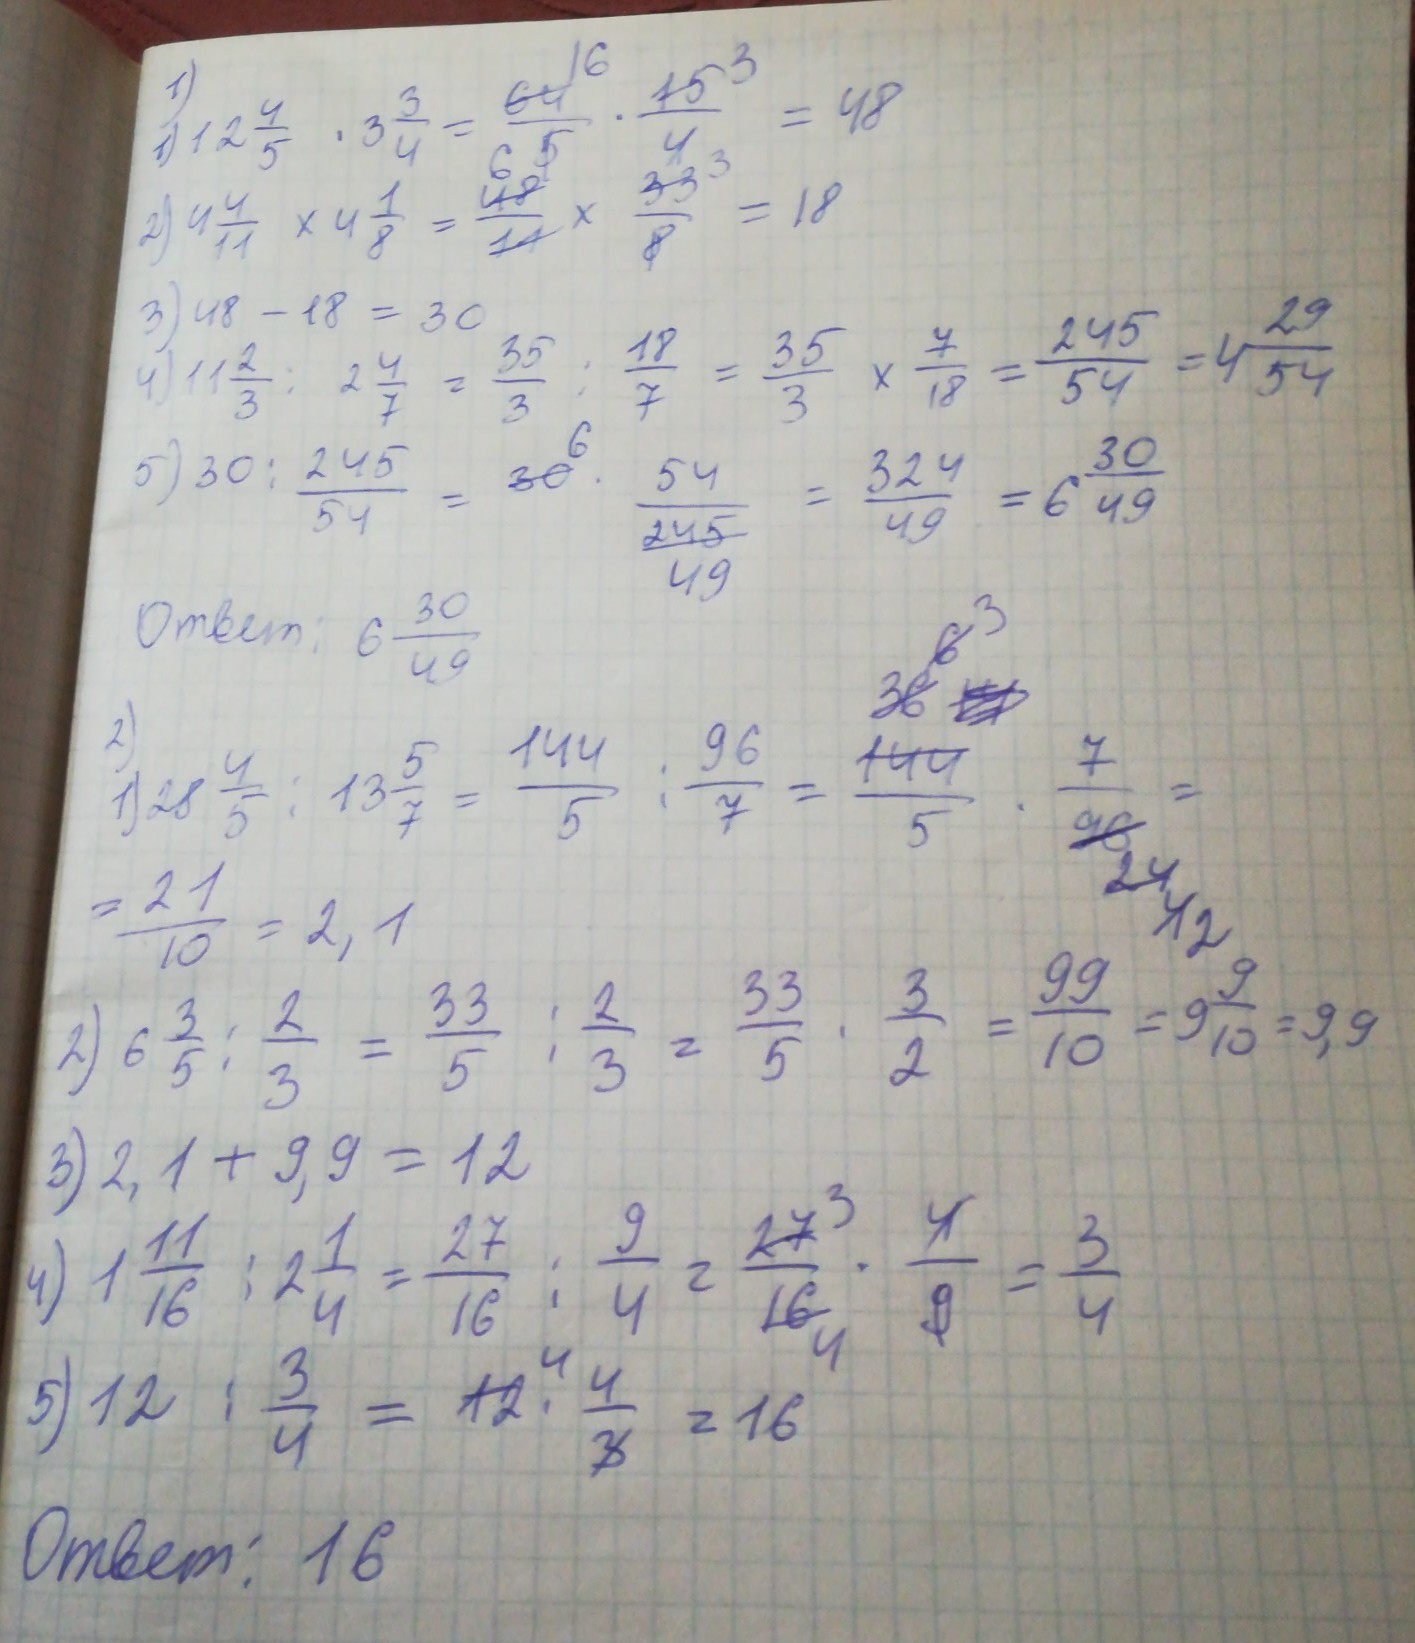 1)
1) 12 4/5 · 3 3/4 = 64 16/5 · 15 3/4 = 48
2) 4 4/11 × 4 1/8 = 6 48/11 × 33 3/8 = 18
3) 48 - 18 = 30
4) 11 2/3 : 2 4/7 = 35/3 : 18/7 = 35/3 × 7/18 = 245/54 = 4 29/54
5) 30 : 245/54 = 30 6 · 54/245 49 = 324/49 = 6 30/49
Ответ: 6 30/49
2)
1) 28 4/5 : 13 5/7 = 144/5 : 96/7 = 144 36 6 3/5 · 7/96 24 12 =
= 21/10 = 2,1
2) 6 3/5 : 2/3 = 33/5 : 2/3 = 33/5 · 3/2 = 99/10 = 9 9/10 = 9,9
3) 2,1 + 9,9 = 12
4) 1 11/16 : 2 1/4 = 27/16 : 9/4 = 27 3/16 4 · 4/9 = 3/4
5) 12 : 3/4 = 12 4 · 4/3 = 16
Ответ: 16